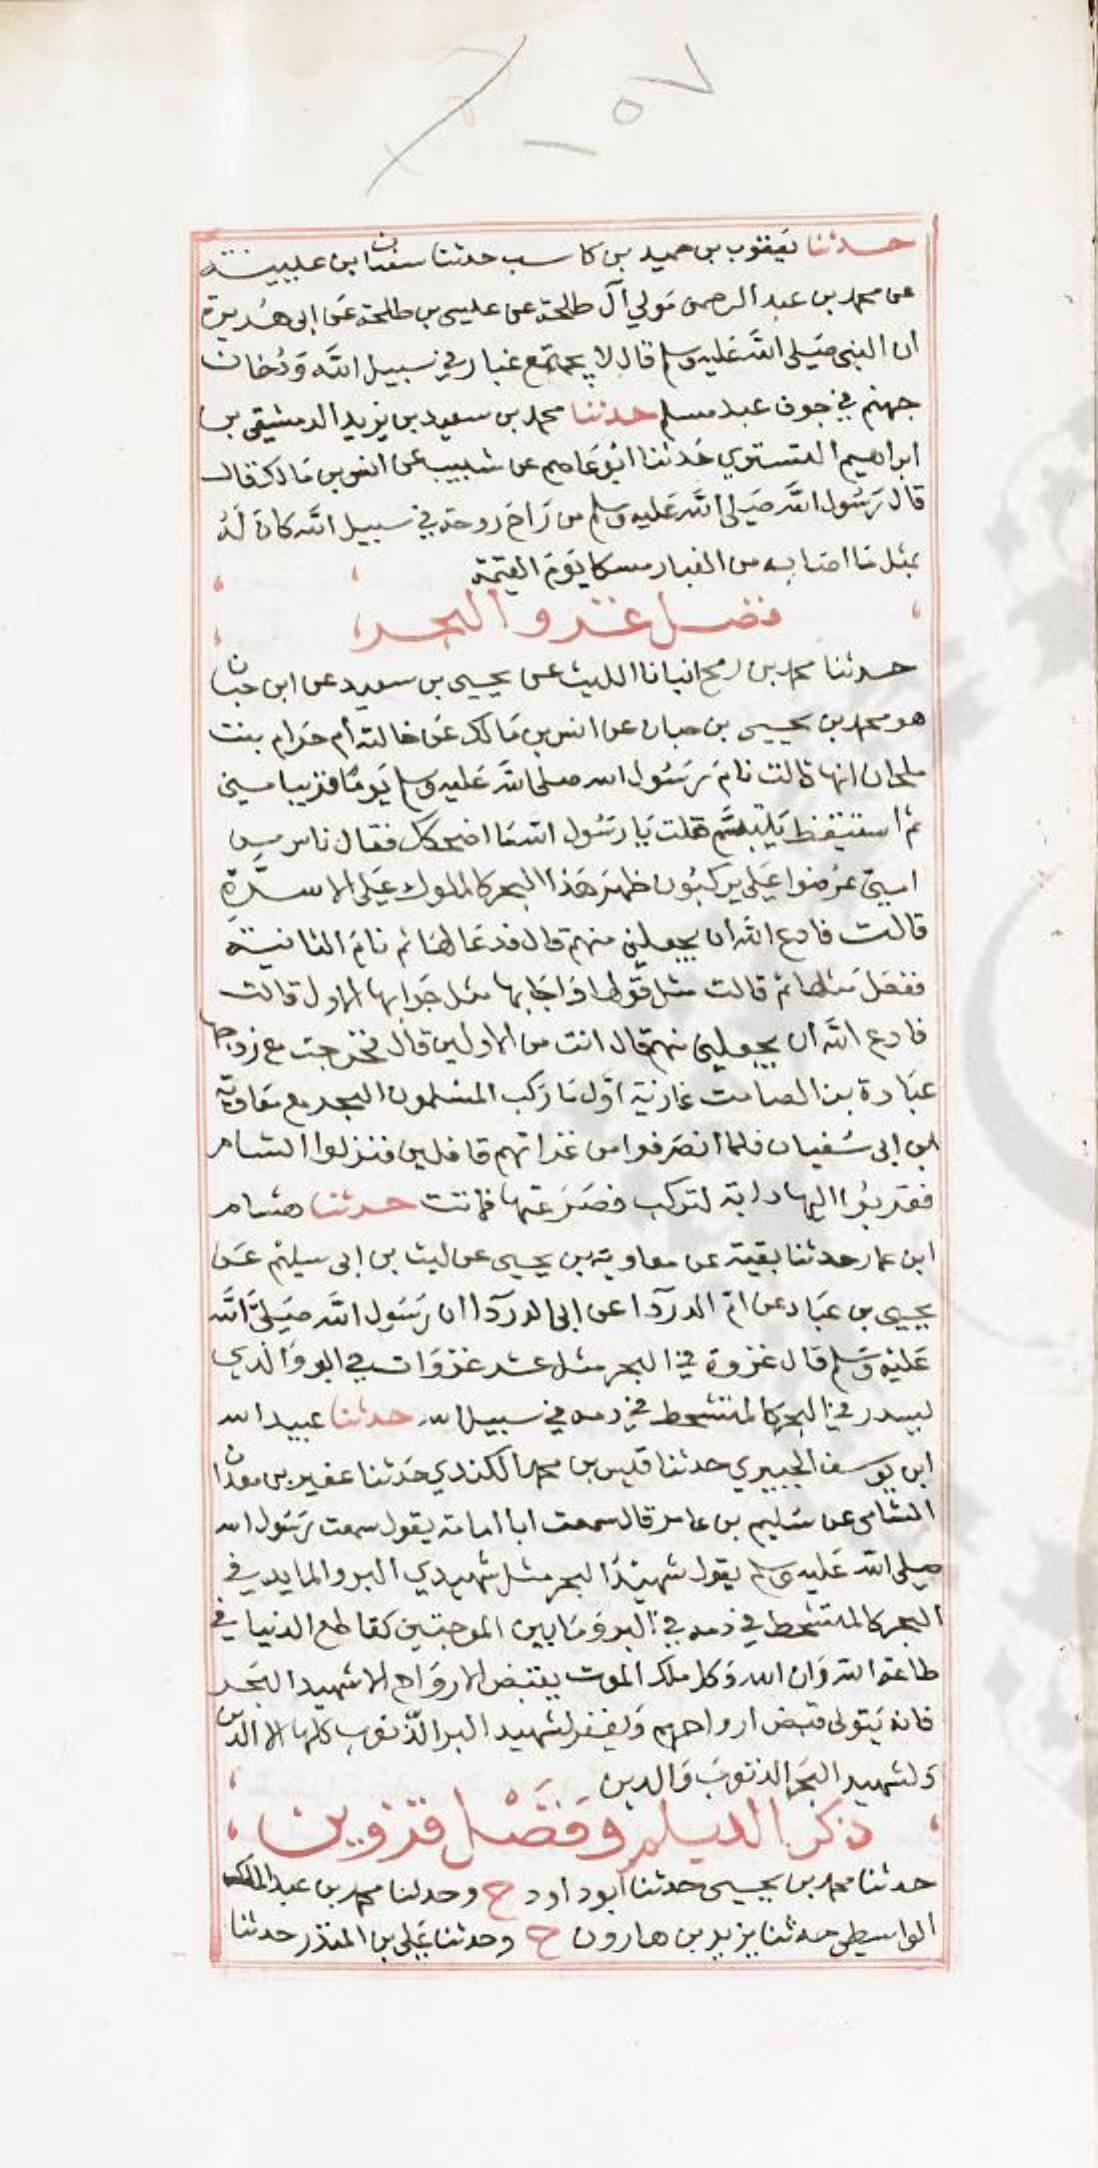 ٥٧
حدثنا يعقوب بن حميد بن كاسب حدثنا سفين ابن عيينة
عن محمد بن عبد الرحمن مولي آل طلحة عن عيسى بن طلحة عن ابى هريرة
ان النبي صلى الله عليه وسلم قال لا يجتمع غبار في سبيل الله ودخان
جهنم في جوف عبد مسلم حدثنا محمد بن سعيد بن يزيد الدمشقي بن
ابراهيم التستري حدثنا ابو عاصم عن شبيب عن انس بن مالك قال
قال رسول الله صلى الله عليه وسلم من راح روحة في سبيل الله كان له
بمثل ما اصابه من الغبار مسكا يوم القيمة
فضل غزو البحر
حدثنا محمد بن رمح انبانا الليث عن يحيى بن سعيد عن ابن حبان
هو محمد بن يحيى بن حبان عن انس بن مالك عن خالته أم حرام بنت
ملحان انها قالت نام رسول الله صلى الله عليه وسلم يوما قريبا مني
ثم استيقظ يبتسم فقلت يا رسول الله ما اضحكك فقال ناس من
امتي عرضوا علي يركبون ظهر هذا البحر كالملوك على الاسرة
قالت فادع الله ان يجعلني منهم قال فدعا لها ثم نام الثانية
ففعل مثلها ثم قالت مثل قولها واجابها مثل جوابها الاول قالت
فادع الله ان يجعلني منهم قال انت من الاولين قال فخرجت مع زوجها
عبادة بن الصامت غازية اول ما ركب المسلمون البحر مع معاوية
ابن ابى سفيان فلما انصرفوا من غزاتهم قافلين فنزلوا الشام
فقربوا اليها دابة لتركب فصرعتها فماتت حدثنا هشام
ابن عمار حدثنا بقية عن معاوية بن يحيى عن ليث بن ابى سليم عن
يحيى بن عباد عن ام الدردا عن ابى الدردا ان رسول الله صلى الله
عليه وسلم قال غزوة في البحر مثل عشر غزوات في البر والذي
يسدر في البحر كالمتشحط في دمه في سبيل الله حدثنا عبيد الله
ابن يوسف الجبيري حدثنا قيس بن محمد الكندي حدثنا عفير بن معدان
الشامى عن سليم بن عامر قال سمعت ابا امامة يقول سمعت رسول الله
صلى الله عليه وسلم يقول شهيد البحر مثل شهيدي البر والمايد في
البحر كالمتشحط في دمه في البر وما بين الموجتين كقاطع الدنيا في
طاعة الله وان الله وكل ملك الموت بقبض الارواح الا شهيد البحر
فانه يتولى قبض ارواحهم ويغفر لشهيد البر الذنوب كلها الا الدين
ولشهيد البحر الذنوب والدين
ذكر الديلم وفضل قزوين
حدثنا محمد بن يحيى حدثنا ابو داود ح وحدثنا محمد بن عبد الملك
الواسطي حدثنا يزيد بن هارون ح وحدثنا علي بن المنذر حدثنا